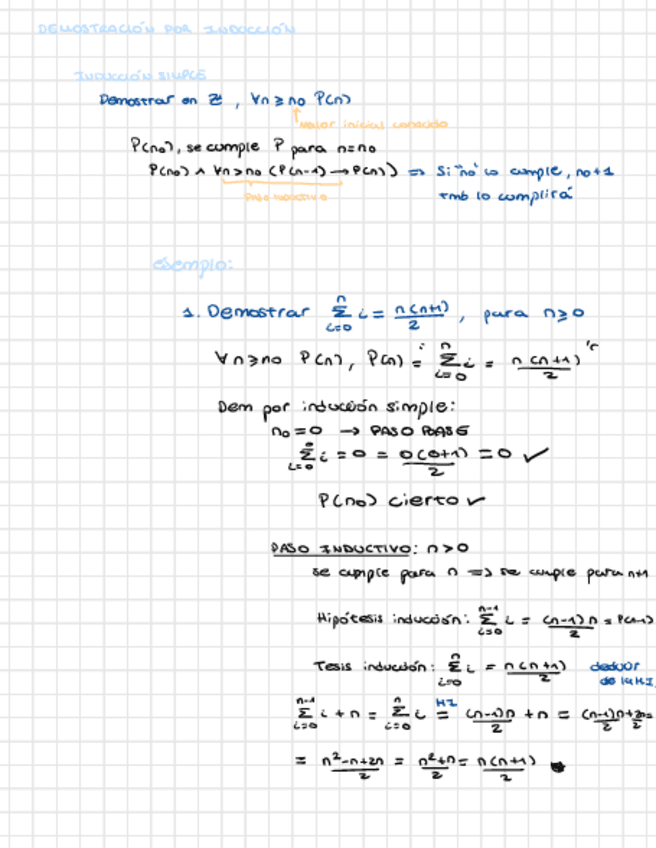 DEMOSTRACIÓN POR INDUCCIÓN
INDUCCIÓN SIMPLE
Demostrar en ℤ⁺, ∀n≥n₀ P(n)
valor inicial conocido
P(n₀), se cumple P para n=n₀
P(n₀) ∧ ∀n>n₀ (P(n-1) → P(n)) ⇒ Si "n₀" lo cumple, n₀+1
tmb lo cumplirá
PASO INDUCTIVO
ejemplo:
1. Demostrar Σ_{i=0}^{n} i = n(n+1)/2, para n≥0
∀n≥n₀ P(n), P(n) = "Σ_{i=0}^{n} i = n(n+1)/2"
Dem por inducción simple:
n₀=0 → PASO BASE
Σ_{i=0}^{0} i = 0 = 0(0+1)/2 = 0 ✓
P(n₀) cierto ✓
PASO INDUCTIVO: n>0
se cumple para n ⇒ se cumple para n+1
Hipótesis inducción: Σ_{i=0}^{n-1} i = (n-1)n/2 = P(n-1)
Tesis inducción: Σ_{i=0}^{n} i = n(n+1)/2 deducir
de la H.I.
Σ_{i=0}^{n-1} i + n = Σ_{i=0}^{n} i =^{HI} (n-1)n/2 + n = (n-1)n+2n/2 =
= n²-n+2n/2 = n²+n/2 = n(n+1)/2